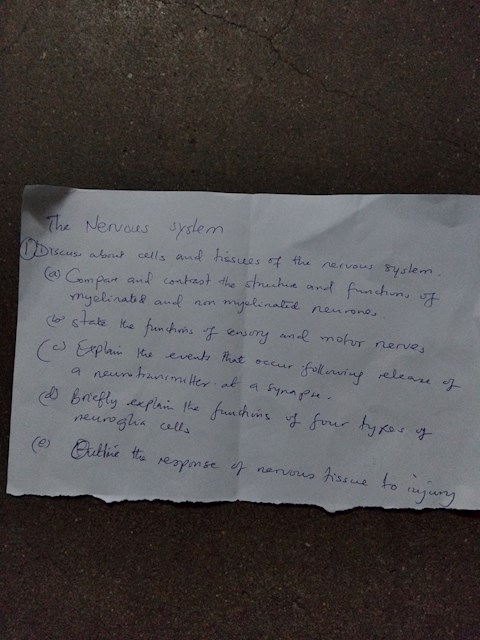 The Nervous system
① Discuss about cells and tissues of the nervous system.
(a) Compare and contrast the structure and functions of
myelinated and non myelinated neurones
(b) state the functions of sensory and motor nerves
(c) Explain the events that occur following release of
a neurotransmitter at a synapse.
(d) Briefly explain the functions of four types of
neuroglia cells
(e) Outline the response of nervous tissue to injury